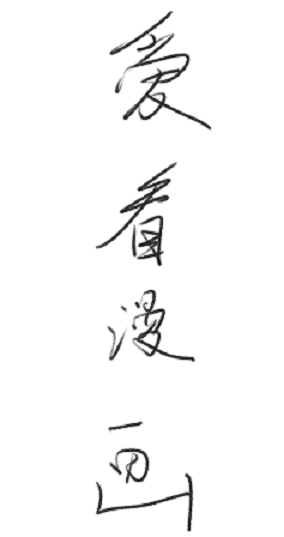 爱看漫画